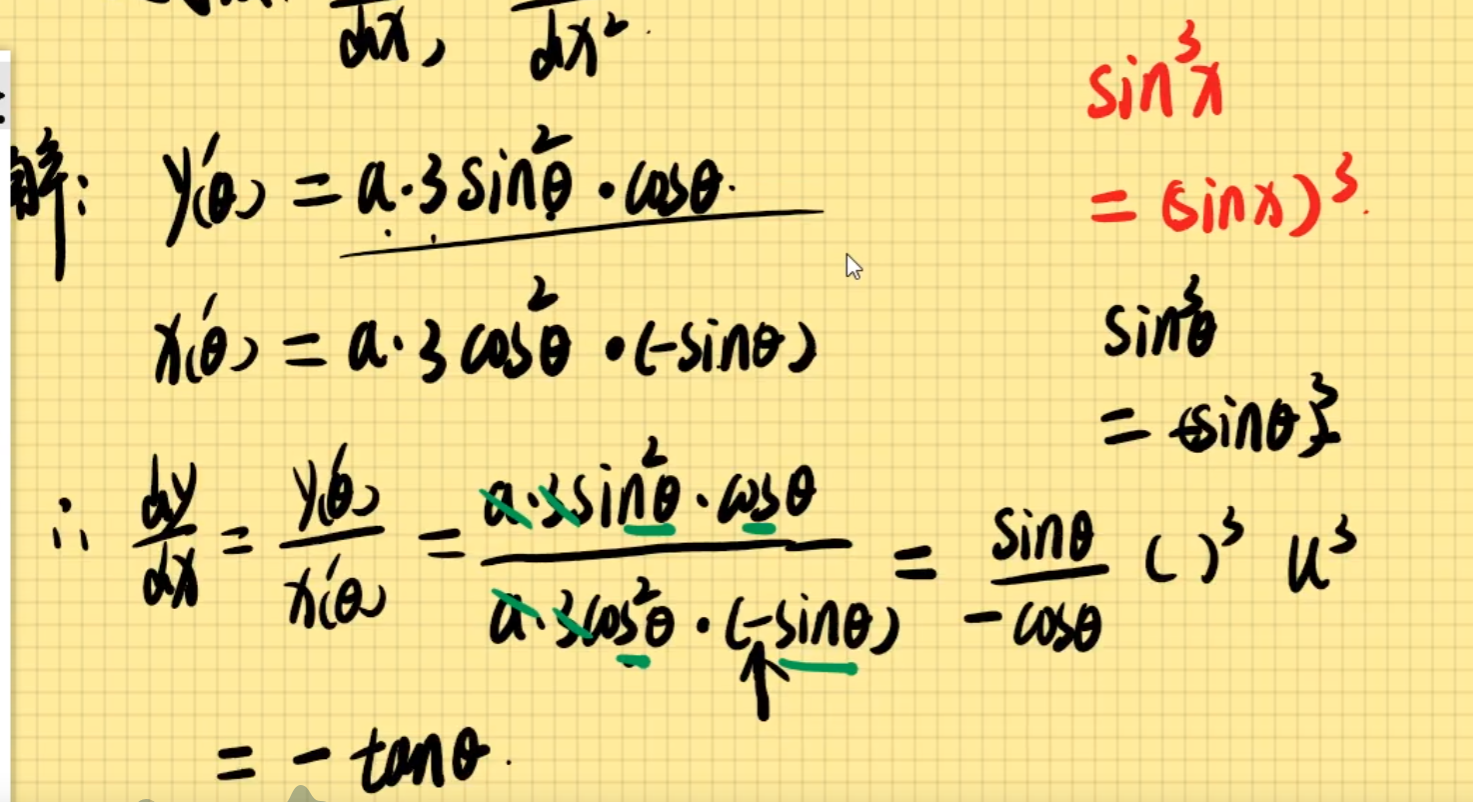 dx, dx²
解: y'(θ) = a·3sin²θ·cosθ.
x'(θ) = a·3cos²θ·(-sinθ)
∴ dy/dx = y'(θ)/x'(θ) = a·3sin²θ·cosθ / a·3cos²θ·(-sinθ) = sinθ/-cosθ ( )³ u³
= - tanθ.
sin³x
= (sinx)³.
sin³θ
= (sinθ)³